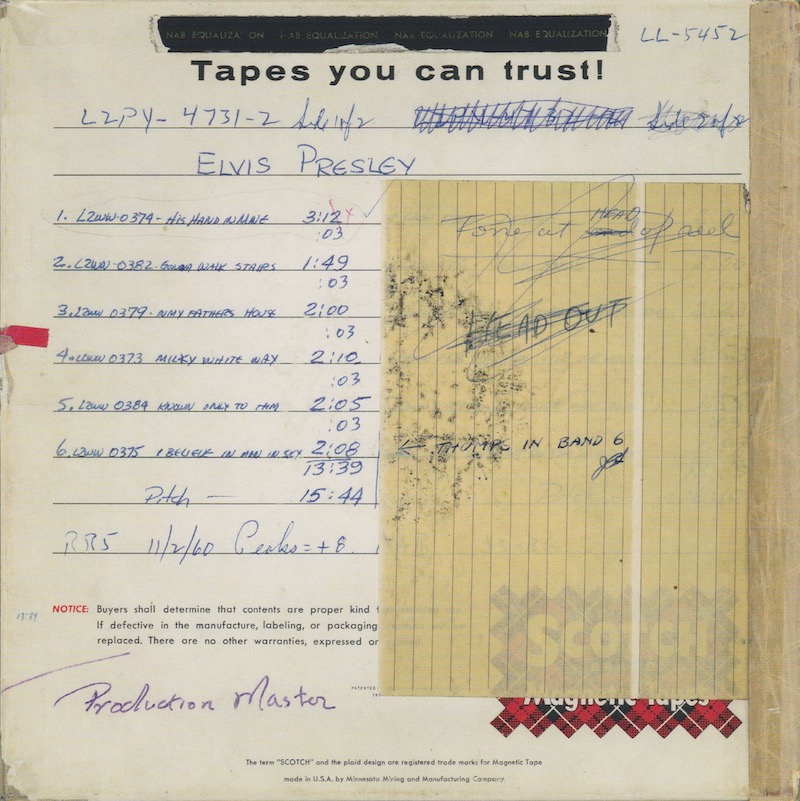 NAB EQUALIZATION NAB EQUALIZATION NAB EQUALIZATION NAB EQUALIZATION
LL-5452
Tapes you can trust!
L2PY-4731-2 Side 1 of 2 Side 2 of 2
ELVIS PRESLEY
1. L2WW-0374-HIS HAND IN MINE 3:12
:03
2. L2WW-0382-GONNA WALK STAIRS 1:49
:03
3. L2WW 0379-IN MY FATHERS HOUSE 2:00
:03
4. L2WW 0373 MILKY WHITE WAY 2:10
:03
5. L2WW 0384 KNOWN ONLY TO HIM 2:05
:03
6. L2WW 0375 I BELIEVE IN MAN IN SKY 2:08
13:39
Pitch — 15:44
RR5 11/2/60 Peaks=+8
Tone at HEAD of reel
HEAD OUT
← THUMPS IN BAND 6
13:39
NOTICE: Buyers shall determine that contents are proper kind
If defective in the manufacture, labeling, or packaging
replaced. There are no other warranties, expressed or
PATENTED
Production Master
Scotch
Magnetic Tapes
The term "SCOTCH" and the plaid design are registered trade marks for Magnetic Tape
made in U.S.A. by Minnesota Mining and Manufacturing Company.